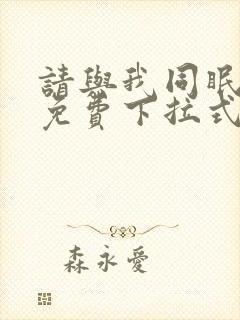 請與我同眠
免費下拉式
森永愛